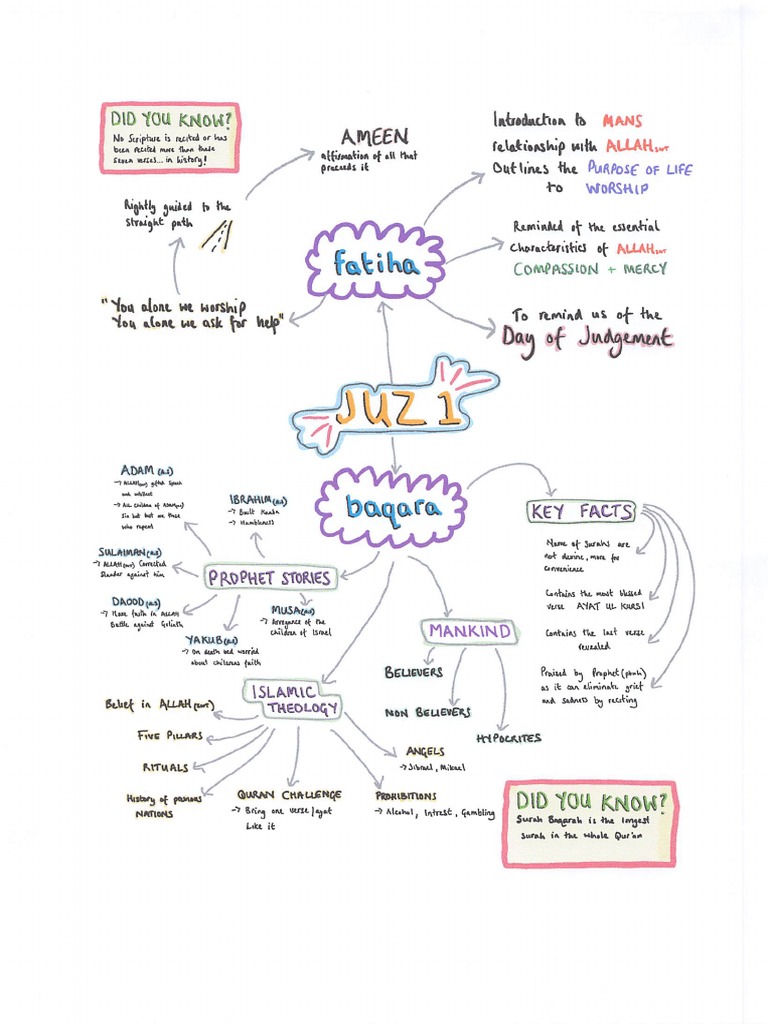 DID YOU KNOW?
No Scripture is recited or has
been recited more than these
seven verses... in history!
AMEEN
affirmation of all that
preceeds it
Introduction to MANS
relationship with ALLAH SWT
Outlines the PURPOSE OF LIFE
to WORSHIP
Rightly guided to the
straight path
fatiha
Reminded of the essential
Characteristics of ALLAH SWT
COMPASSION + MERCY
"You alone we worship
You alone we ask for help"
To remind us of the
Day of Judgement
JUZ 1
baqara
ADAM (A.S)
→ ALLAH(SWT) gifted Speech
and intellect
→ ALL children of ADAM(A.S)
Sin but best are those
who repent
IBRAHIM (A.S)
→ Built Kaaba
→ Humbleness
KEY FACTS
Name of Surahs are
not devine, more for
convenience
SULAIMAN (A.S)
→ ALLAH(SWT) Corrected
Slander against him
PROPHET STORIES
DAOOD (A.S)
→ Have faith in ALLAH
Battle against Goliath
MUSA (A.S)
→ Arrogance of the
children of Israel
Contains the most blessed
verse AYAT UL KURSI
YAKUB (A.S)
→ On death bed worried
about childrens faith
MANKIND
Contains the last verse
revealed
BELIEVERS
NON BELIEVERS
HYPOCRITES
Praised by Prophet (pbuh)
as it can eliminate grief
and sadness by reciting
ISLAMIC
THEOLOGY
Belief in ALLAH (SWT)
FIVE PILLARS
RITUALS
History of previous
NATIONS
QURAN CHALLENGE
→ Bring one verse/ayat
Like it
ANGELS
→ Jibrael, Mikael
PROHIBITIONS
→ Alcohol, Intrest, Gambling
DID YOU KNOW?
Surah Baqarah is the longest
surah in the whole Qur'an